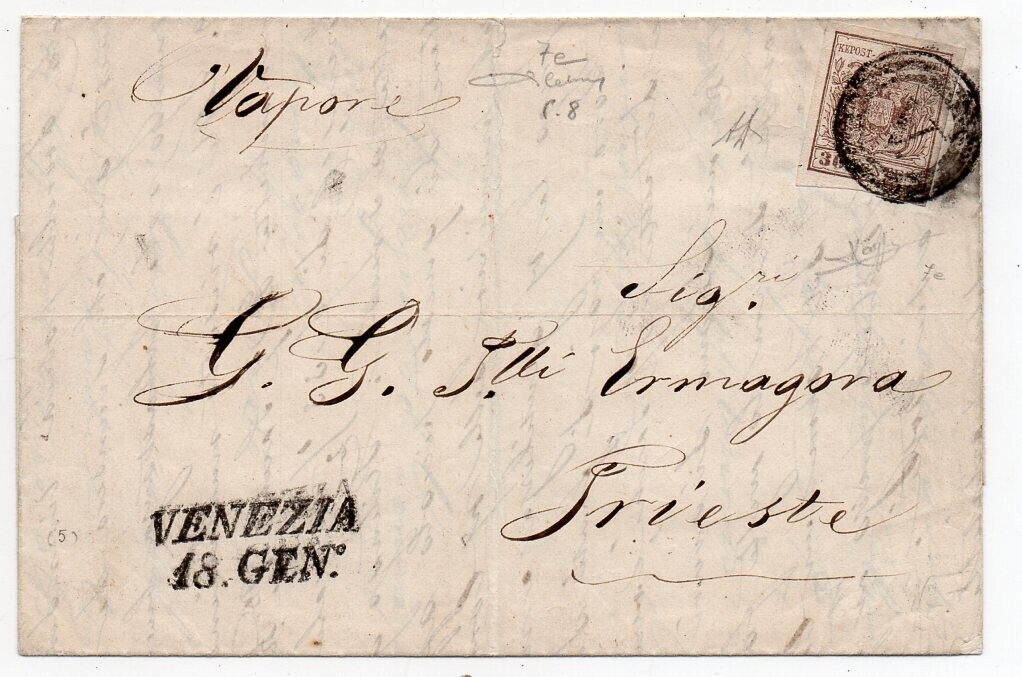 Vapore
7e
P. 8
KEPOST-
30
Sig.ri
7e
G. G. F.lli Ermagora
Trieste
VENEZIA
18. GEN.º
(5)